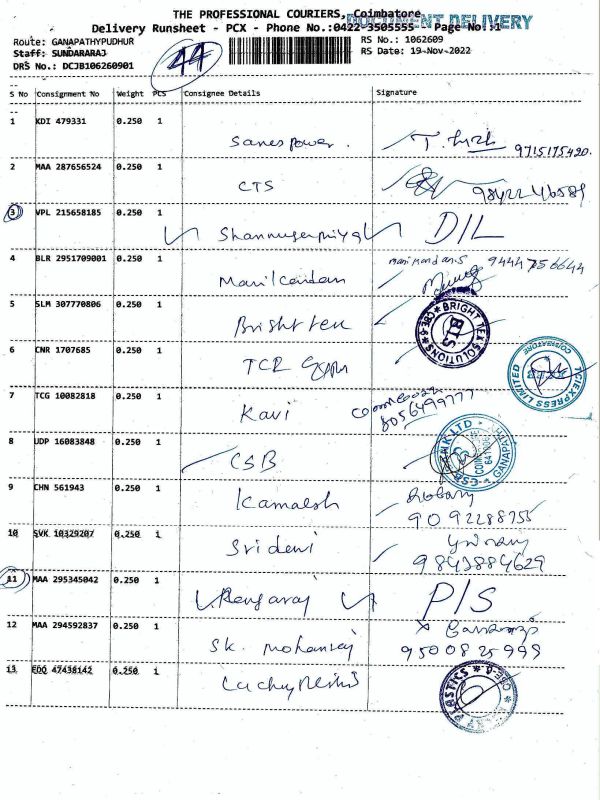 THE PROFESSIONAL COURIERS, Coimbatore
DOCUMENT DELIVERY
Delivery Runsheet - PCX - Phone No.:0422-3505555 Page No.:1
Route: GANAPATHYPUDHUR
RS No.: 1062609
Staff: SUNDARARAJ
RS Date: 19-Nov-2022
DRS No.: DCJB106260901
44
S No Consignment No Weight PCS Consignee Details Signature
1 KDI 479331 0.250 1
Sanespower. 9715175420.
2 MAA 287656524 0.250 1
CTS
3 VPL 215658185 0.250 1
D/L
4 BLR 2951709001 0.250 1
Manikandan 9444756644
5 SLM 307770806 0.250 1
Bright tex
BRIGHT TEX SOLUTIONS * CBE-6 *
BTS
6 CNR 1707685 0.250 1
TCI
TCIEXPRESS LIMITED
COIMBATORE
7 TCG 10082818 0.250 1
Kavi 8056499777
8 UDP 16083848 0.250 1
CSB
9 CHN 561943 0.250 1
Kamalesh
9092288755
10 SVK 10329207 0.250 1
Sridevi
9843884629
11 MAA 295345042 0.250 1
Rengaraj P/S
12 MAA 294592837 0.250 1
SK. Mohanraj 9500825999
13 EDQ 47438142 0.250 1
PLASTICS * CBE-6